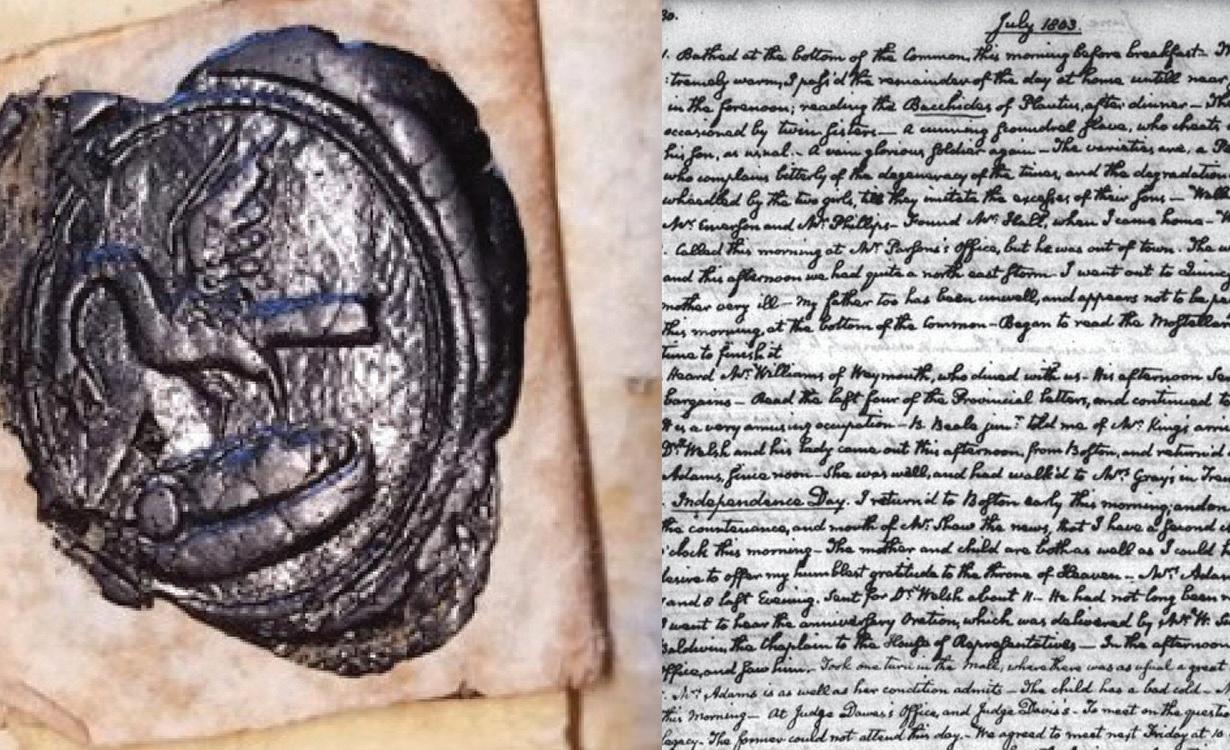 30.
July 1803.
1. Bathed at the bottom of the Common, this morning before breakfast-
tremely warm, I pass'd the remainder of the day at home untill near
in the forenoon; reading the Bacchides of Plautus, after dinner — Th
occasioned by twin sisters — a cunning scoundrel slave, who cheats
his son, as usual. - A vain glorious soldier again — The varieties are, a Pe
who complains bitterly of the degeneracy of the times, and the degradation
wheedled by the two girls, till they imitate the excesses of their sons — Walk
Mr. Emerson and Mr. Phillips - Found Mr. Hall, when I came home -
Called this morning at Mr. Parsons's Office, but he was out of town. The
and this afternoon we had quite a north east storm - I went out to Quin
mother very ill — my father too has been unwell, and appears not to be
this morning, at the bottom of the Common — Began to read the Mostellar
time to finish it
Heard Mr. Williams of Weymouth, who dined with us - His afternoon Se
bargains — Read the last four of the Provincial Letters, and continued to
It is a very amusing occupation — B. Beale junr. told me of Mr. King's arri
Dr. Welsh and his Lady came out this afternoon, from Boston, and return'd
Adams, since noon — She was well, and had walk'd to Mrs. Gray's in
Independence Day. I return'd to Boston early this morning; and on
the countenance, and mouth of Mr. Shaw the news, that I have a second
o'clock this morning — The mother and child are both as well as I could h
desire to offer my humblest gratitude to the throne of Heaven — Mrs. Adam
and 8 last Evening. Sent for Dr. Welsh about 11 — He had not long been
I went to hear the anniversary Oration, which was delivered by Mr. W. Su
Baldwin, the Chaplain to the House of Representatives — In the afternoon
Office, and saw him. Took one turn in the Mall, where there was as usual a great
Mrs. Adams is as well as her condition admits — The child has a bad cold —
this Morning — At Judge Dawes's Office, and Judge Davis's — To meet on the questi
legacy — The former could not attend this day. — We agreed to meet next Friday at 10